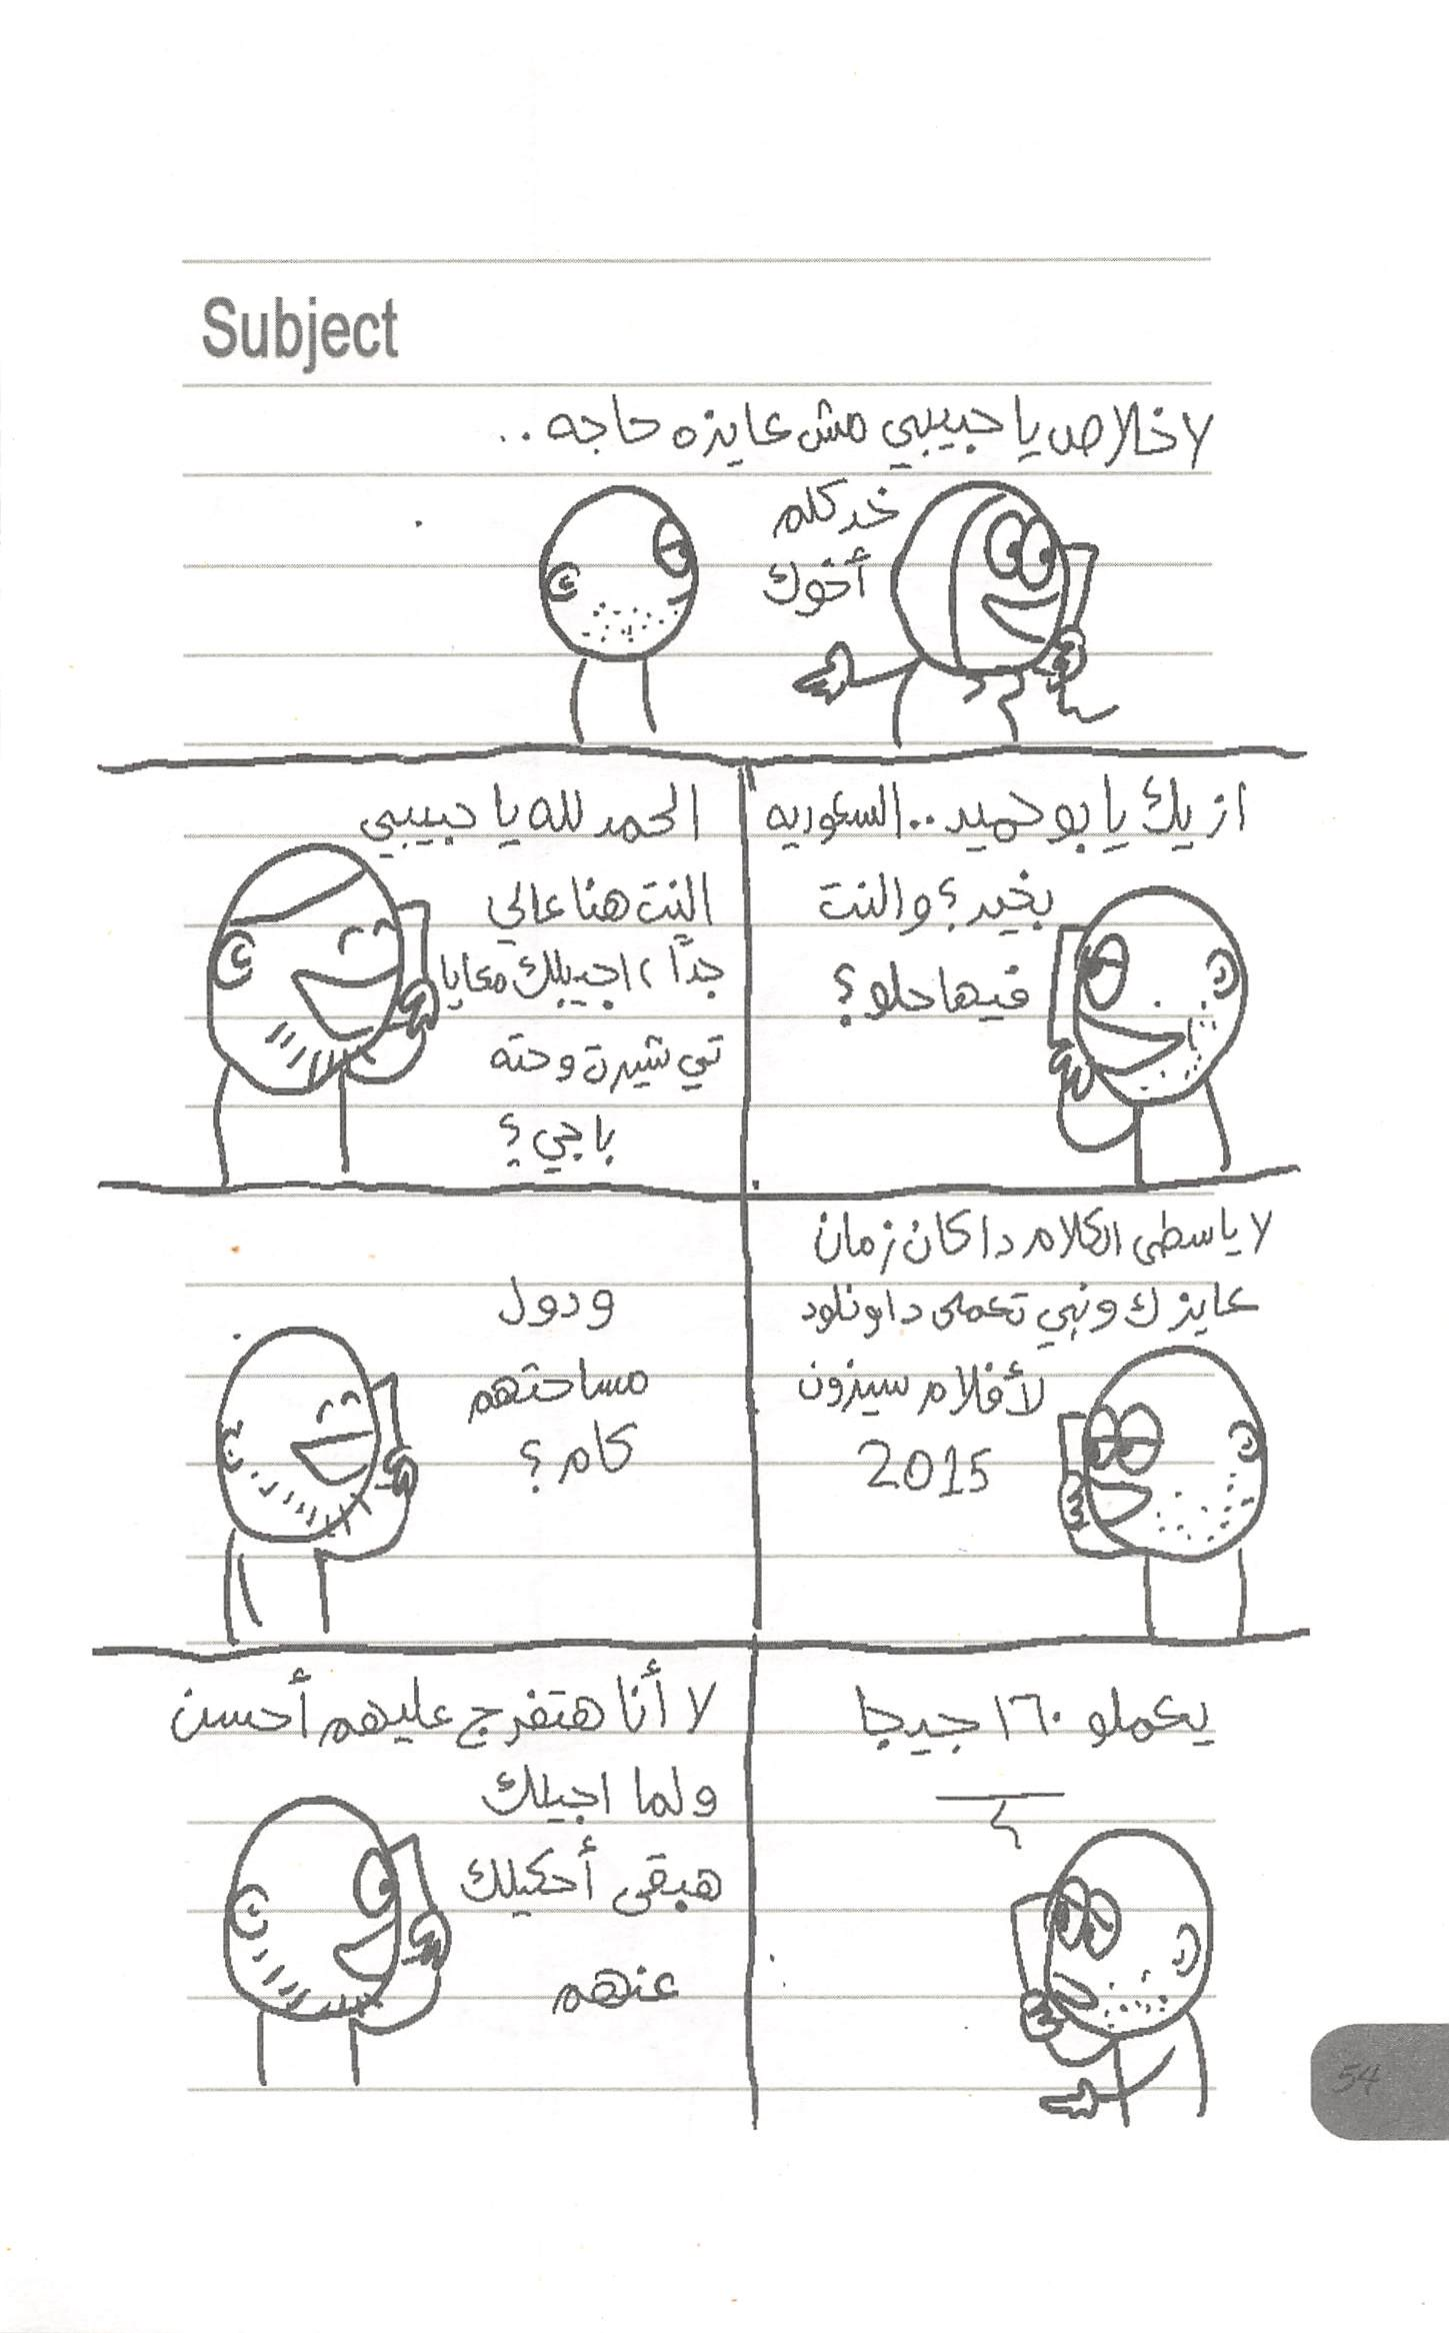 Subject
لا خلاص يا حبيبي مش عايزه حاجه..
خد كلم
أخوك
ازيك يا بو حميد..السعوديه
بخير؟ والنت
فيها حلو؟
الحمد لله يا حبيبي
النت هنا عالي
جداً، اجيبلك معايا
تي شيرت وحته
باجي؟
لا ياسطى الكلام دا كان زمان
عايزك ونبي تعملى داونلود
لأفلام سيزون
2015
ودول
مساحتهم
كام؟
يعملو ١٦٠ جيجا
لا أنا هتفرج عليهم أحسن
ولما اجيلك
هبقى أحكيلك
عنهم
54